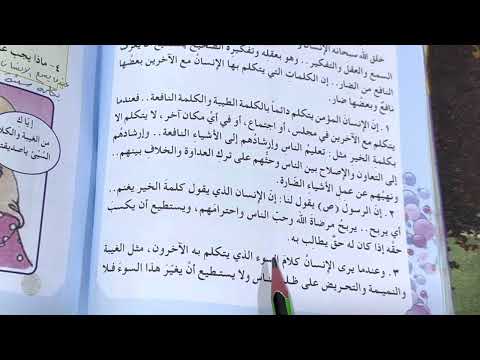 ٤ . ماذا يجب عـ
إيّاك
من الغيبة والكلا
السّيّئ بأصدقائـ
خلق الله سبحانه الإنسان و
السمع والعقل والتفكير . . وهو بعقله وتفكيره الصحيح
النافع من الضار . . إن الكلمات التي يتكلم بها الإنسانُ مع الآخرين بعضُها
نافعٌ وبعضها ضار .
١ . إنّ الإنسان المؤمن يتكلم دائماً بالكلمة الطيبة والكلمة النافعة . . فعندما
يتكلم مع الآخرين في مجلس ، أو اجتماع ، أو في أيِّ مكان آخر ، لا يتكلم إلا
بكلمة الخير مثل : تعليمُ الناس وإرشادُهم إلى الأشياء النافعة . . وإرشادُهم
إلى التعاون والإصلاح بين الناس وحثُّهم على ترك العداوة والخلاف بينهم . .
ونهيُهم عن عمل الأشياء الضّارة .
٢ . إنّ الرسولُ (ص) يقول لنا : إنّ الإنسان الذي يقول كلمة الخير يغنم . .
أي يربح . . يربح مرضاةَ الله وحبّ الناس واحترامَهم ، ويستطيع أن يكسبَ
حقّه إذا كان له حقٌّ يطالب به .
٣ . وعندما يرى الإنسانُ كلامَ السوء الذي يتكلم به الآخرون ، مثل الغيبة
والنميمة والتحريض على ظلم الناس ولا يستطيع أنْ يغيّرَ هذا السوءَ فلا